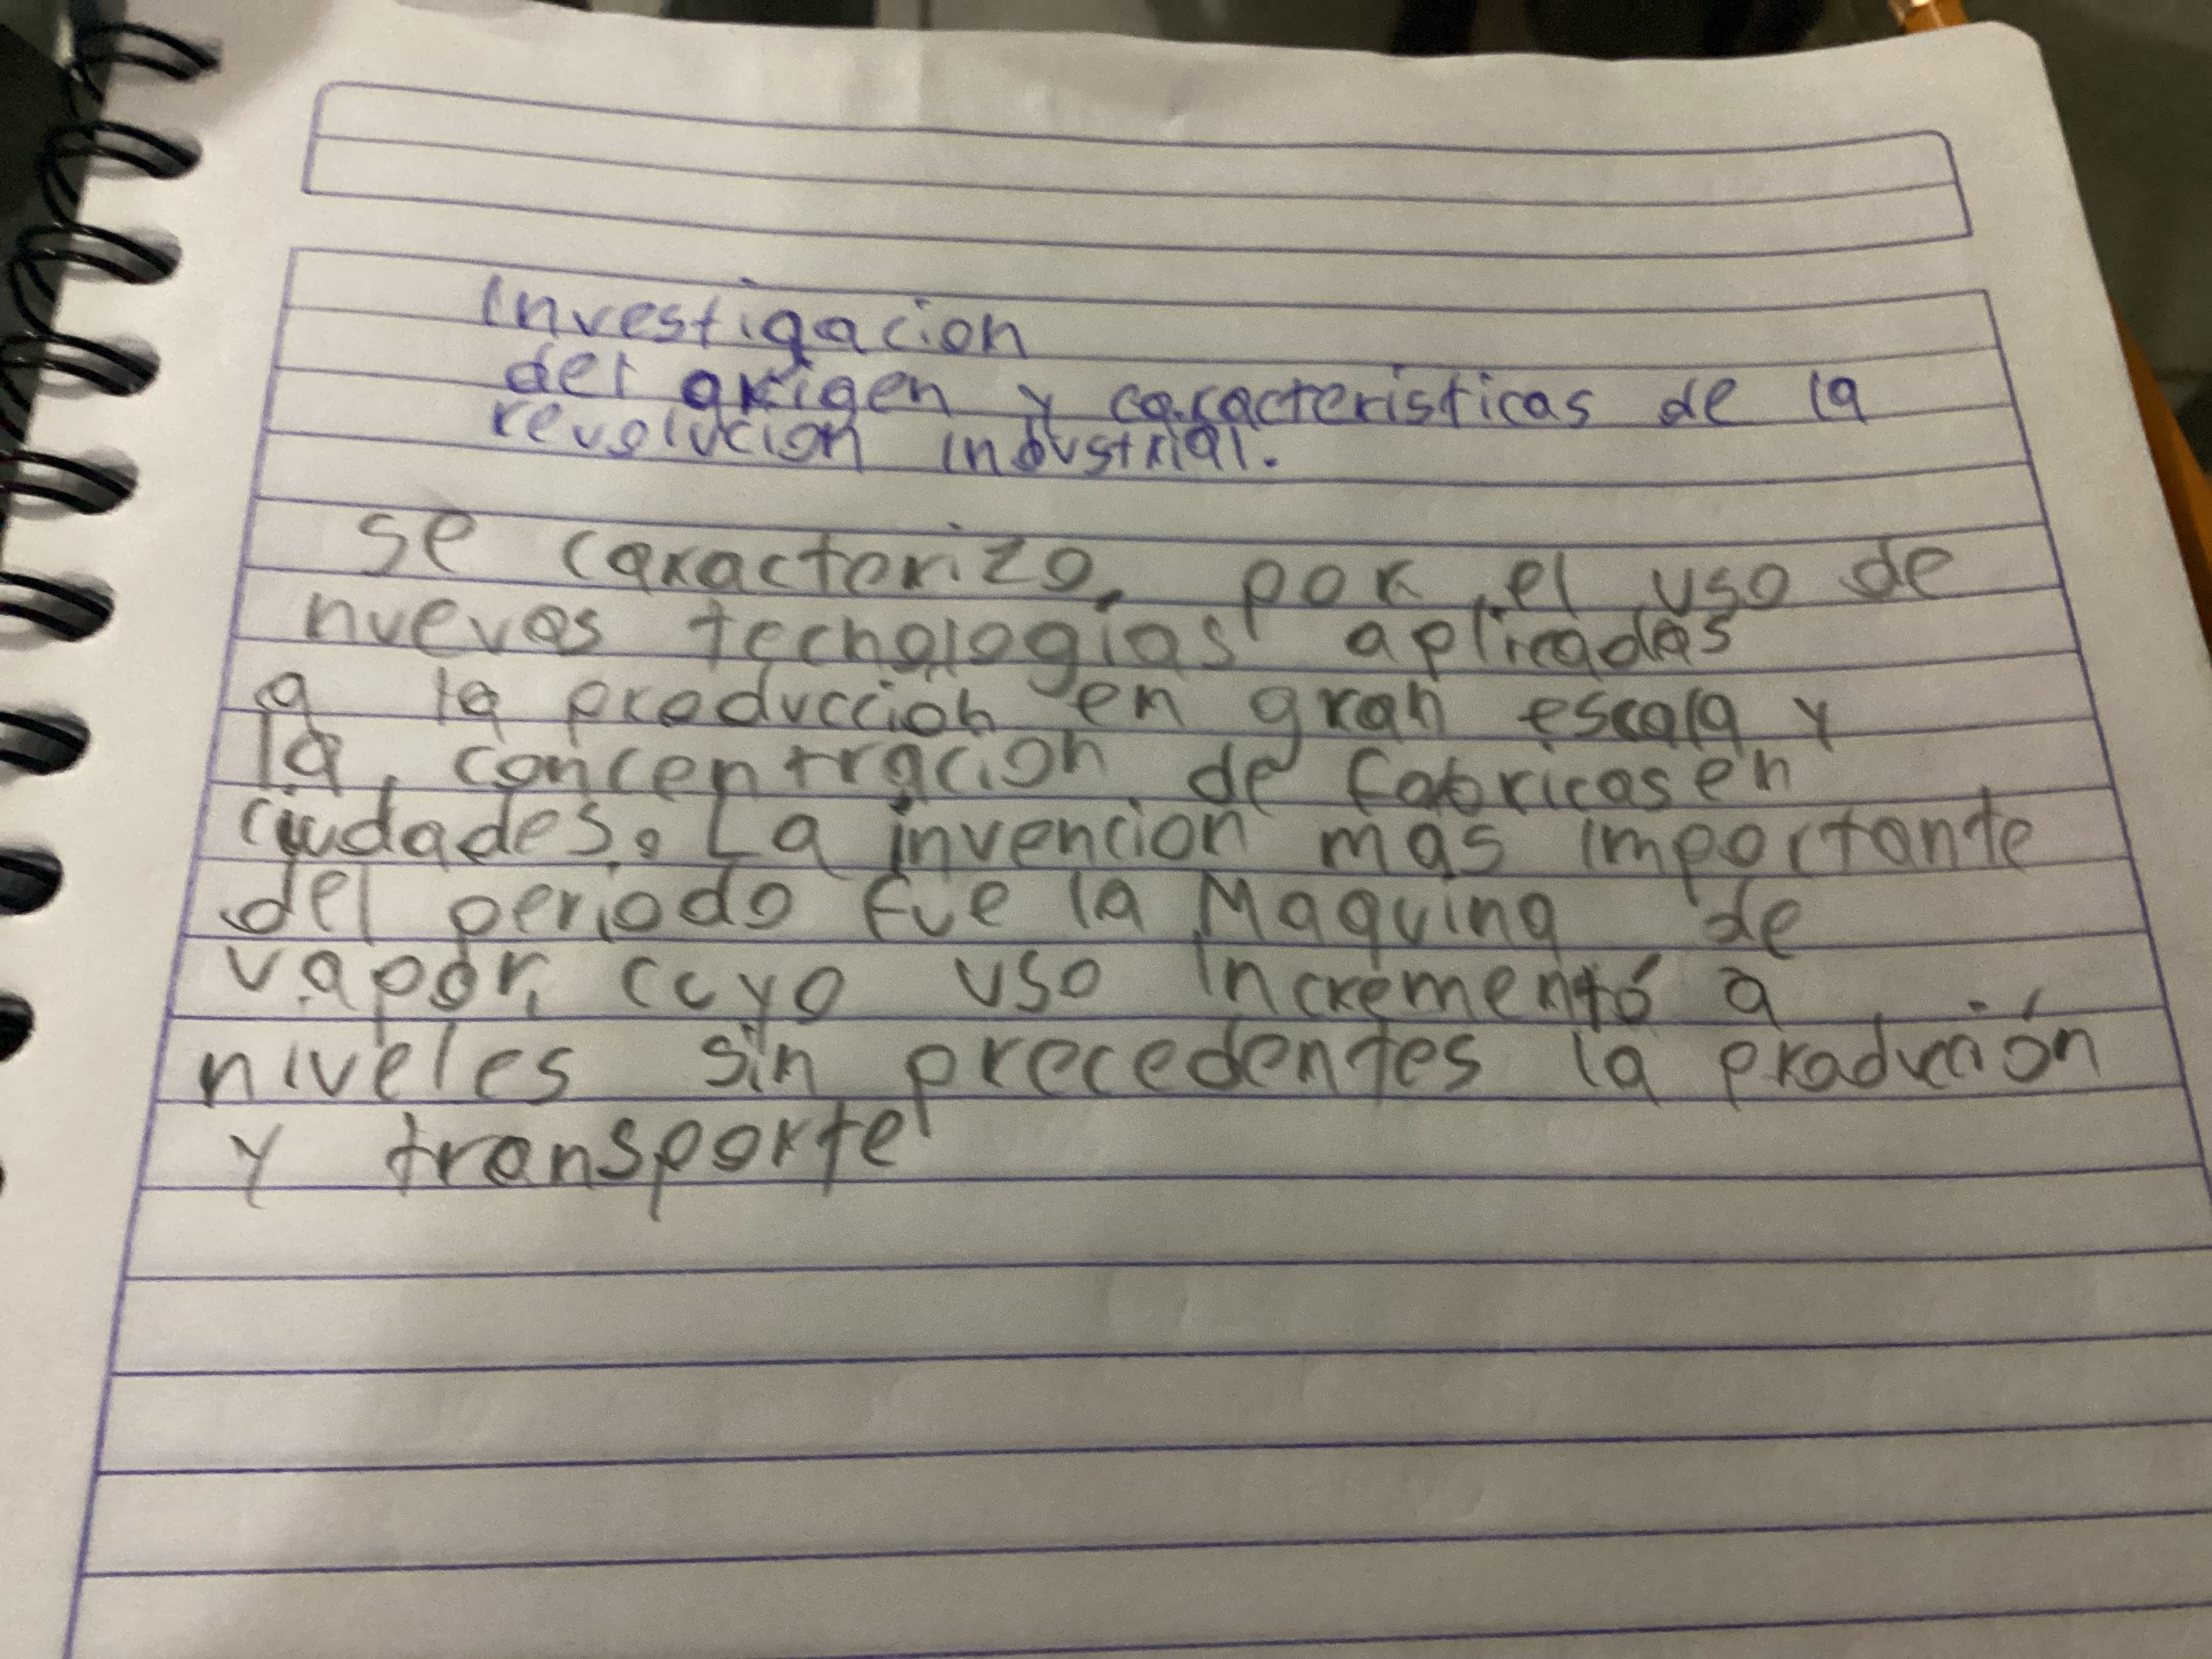 Investigacion
del origen y caracteristicas de la
revolucion industrial.
se caracterizo. por el uso de
nuevas tecnologias aplicadas
a la produccion en gran escala y
la concentracion de fabricas en
ciudades. La invencion mas importante
del periodo fue la Maquina de
vapor, cuyo uso incrementó a
niveles sin precedentes la producción
y transporte